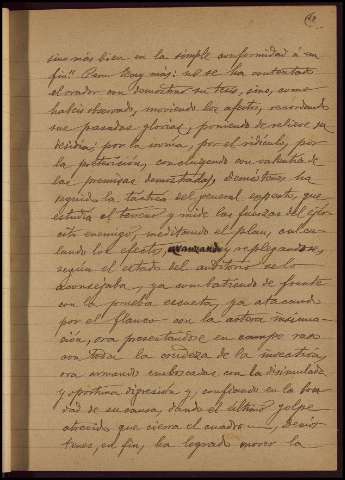 sino más bien en la simple conformidad á un
fin". Pero hay más: no se ha contentado
el orador con demostrar su tesis, sino, como
habeis observado, moviendo los afectos, recordando
sus pasadas glorias, poniendo de relieve su
desidia: por la ironía, por el ridículo, por
la pretericion, concluyendo con valentia de
las premisas demostradas, Demóstenes ha
seguido la táctica del general experto, que
estudia el terreno y mide las fuerzas del ejér-
cito enemigo, meditando el plan, calcu-
lando los efectos, avanzando y replegandose,
según el estado del auditorio se lo
aconsejaba, ya combatiendo de frente
con la prueba escueta, ya atacando
por el flanco con la astuta insinua-
ción, ora presentándose en campo raso
con toda la crudeza de la invectiva,
ora armando emboscadas con la disimulada
y oportuna digresión y, confiando en la bon-
dad de su causa, dando el último golpe
atrevido que cierra el cuadro —, Demós-
tenes, en fin, ha logrado mover la